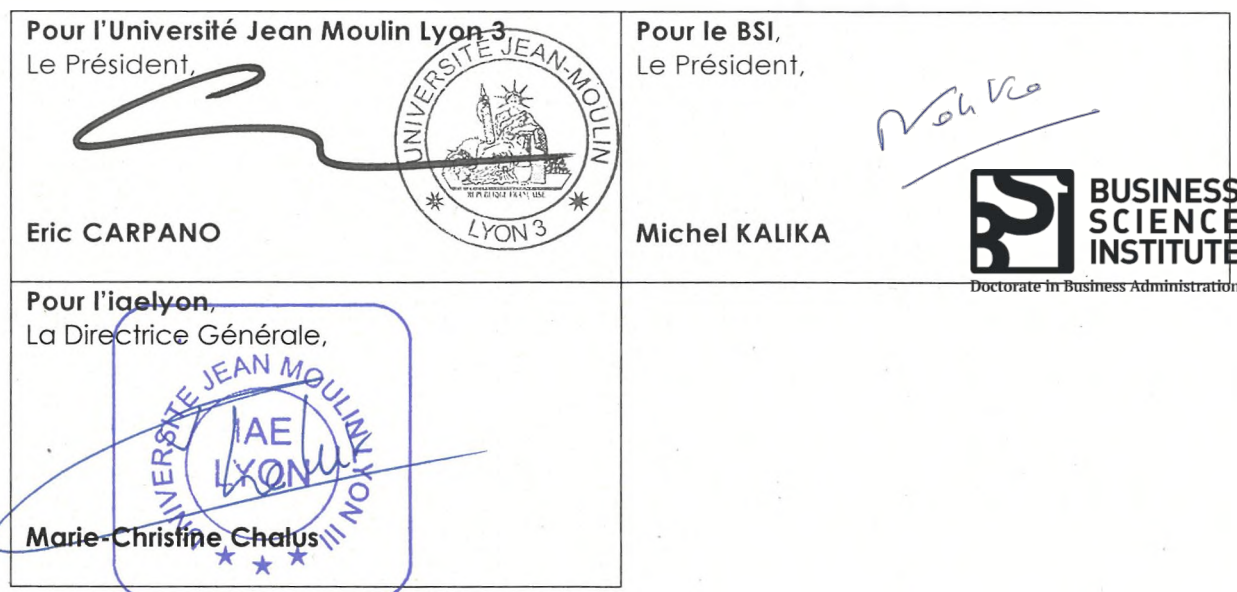 Pour l'Université Jean Moulin Lyon 3
Le Président,
UNIVERSITÉ JEAN-MOULIN
REPUBLIQUE FRANÇAISE
LYON 3
Eric CARPANO
Pour le BSI,
Le Président,
Kalika
Michel KALIKA
BSi
BUSINESS
SCIENCE
INSTITUTE
Doctorate in Business Administration
Pour l'iaelyon,
La Directrice Générale,
UNIVERSITE JEAN MOULIN LYON III
IAE
LYON
Marie-Christine Chalus